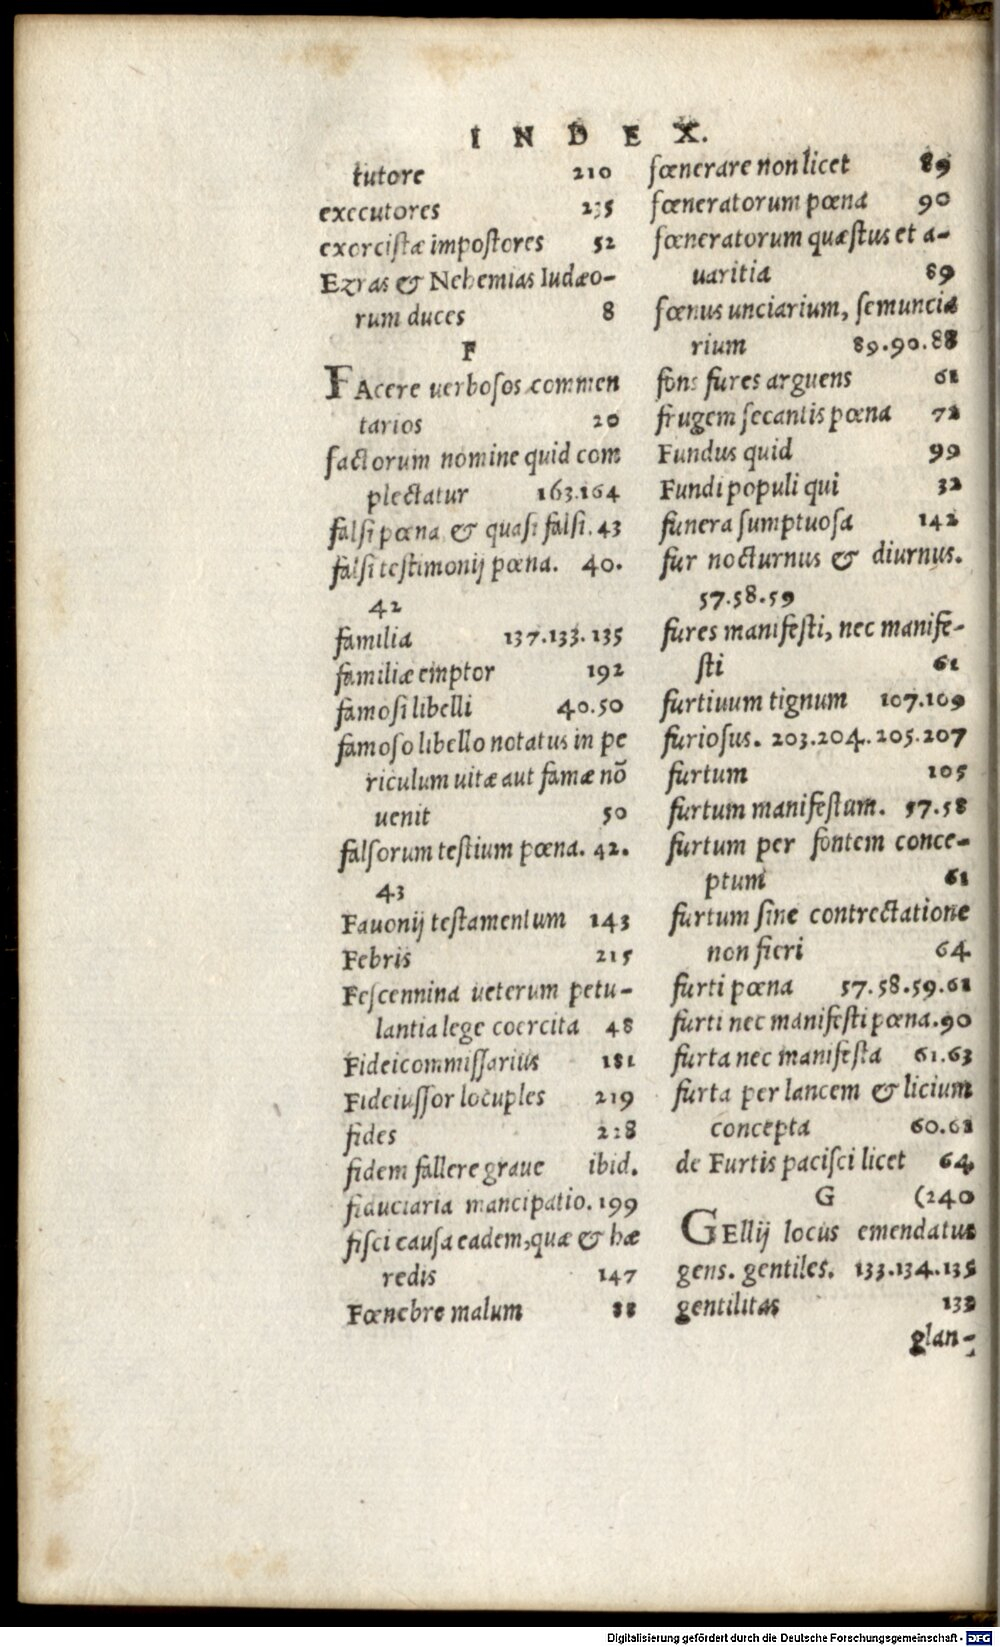 INDEX.
tutore 210
executores 235
exorcistæ impostores 52
Ezras & Nehemias Iudæo-
rum duces 8
F
FAcere uerbosos commen
tarios 20
factorum nomine quid com
plectatur 163.164
falsi pœna & quasi falsi. 43
falsi testimonij pœna. 40.
42
familia 137.133.135
familiæ emptor 192
famosi libelli 40.50
famoso libello notatus in pe
riculum uitæ aut famæ nõ
uenit 50
falsorum testium pœna. 42.
43
Fauonij testamentum 143
Febris 215
Fescennina ueterum petu-
lantia lege coercita 48
Fideicommissarius 181
Fideiussor locuples 219
fides 228
fidem fallere graue ibid.
fiduciaria mancipatio. 199
fisci causa eadem, quæ & hæ
redis 147
Fœnebre malum 88
fœnerare non licet 89
fœneratorum pœna 90
fœneratorum quæstus et a-
uaritia 89
fœnus unciarium, semuncia
rium 89.90.88
fons fures arguens 61
frugem secantis pœna 72
Fundus quid 99
Fundi populi qui 32
funera sumptuosa 142
fur nocturnus & diurnus.
57.58.59
fures manifesti, nec manife-
sti 61
furtiuum tignum 107.109
furiosus. 203.204.205.207
furtum 105
furtum manifestum. 57.58
furtum per fontem conce-
ptum 61
furtum sine contrectatione
non fieri 64
furti pœna 57.58.59.61
furti nec manifesti pœna. 90
furta nec manifesta 61.63
furta per lancem & licium
concepta 60.61
de Furtis pacisci licet 64
G (240
GEllij locus emendatus
gens. gentiles. 133.134.135
gentilitas 133
glan-
Digitalisierung gefördert durch die Deutsche Forschungsgemeinschaft - DFG